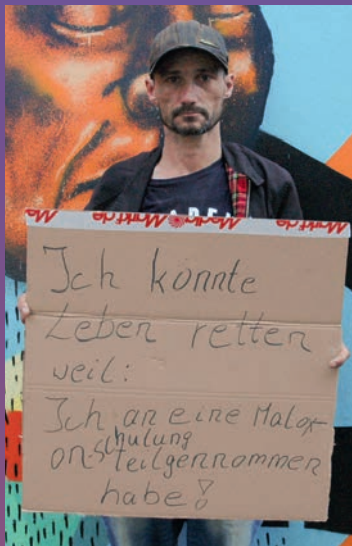 Markt.de Media
Ich konnte
Leben retten
weil:
Ich an eine Malox-
on-Schulung
teilgennommen
habe!